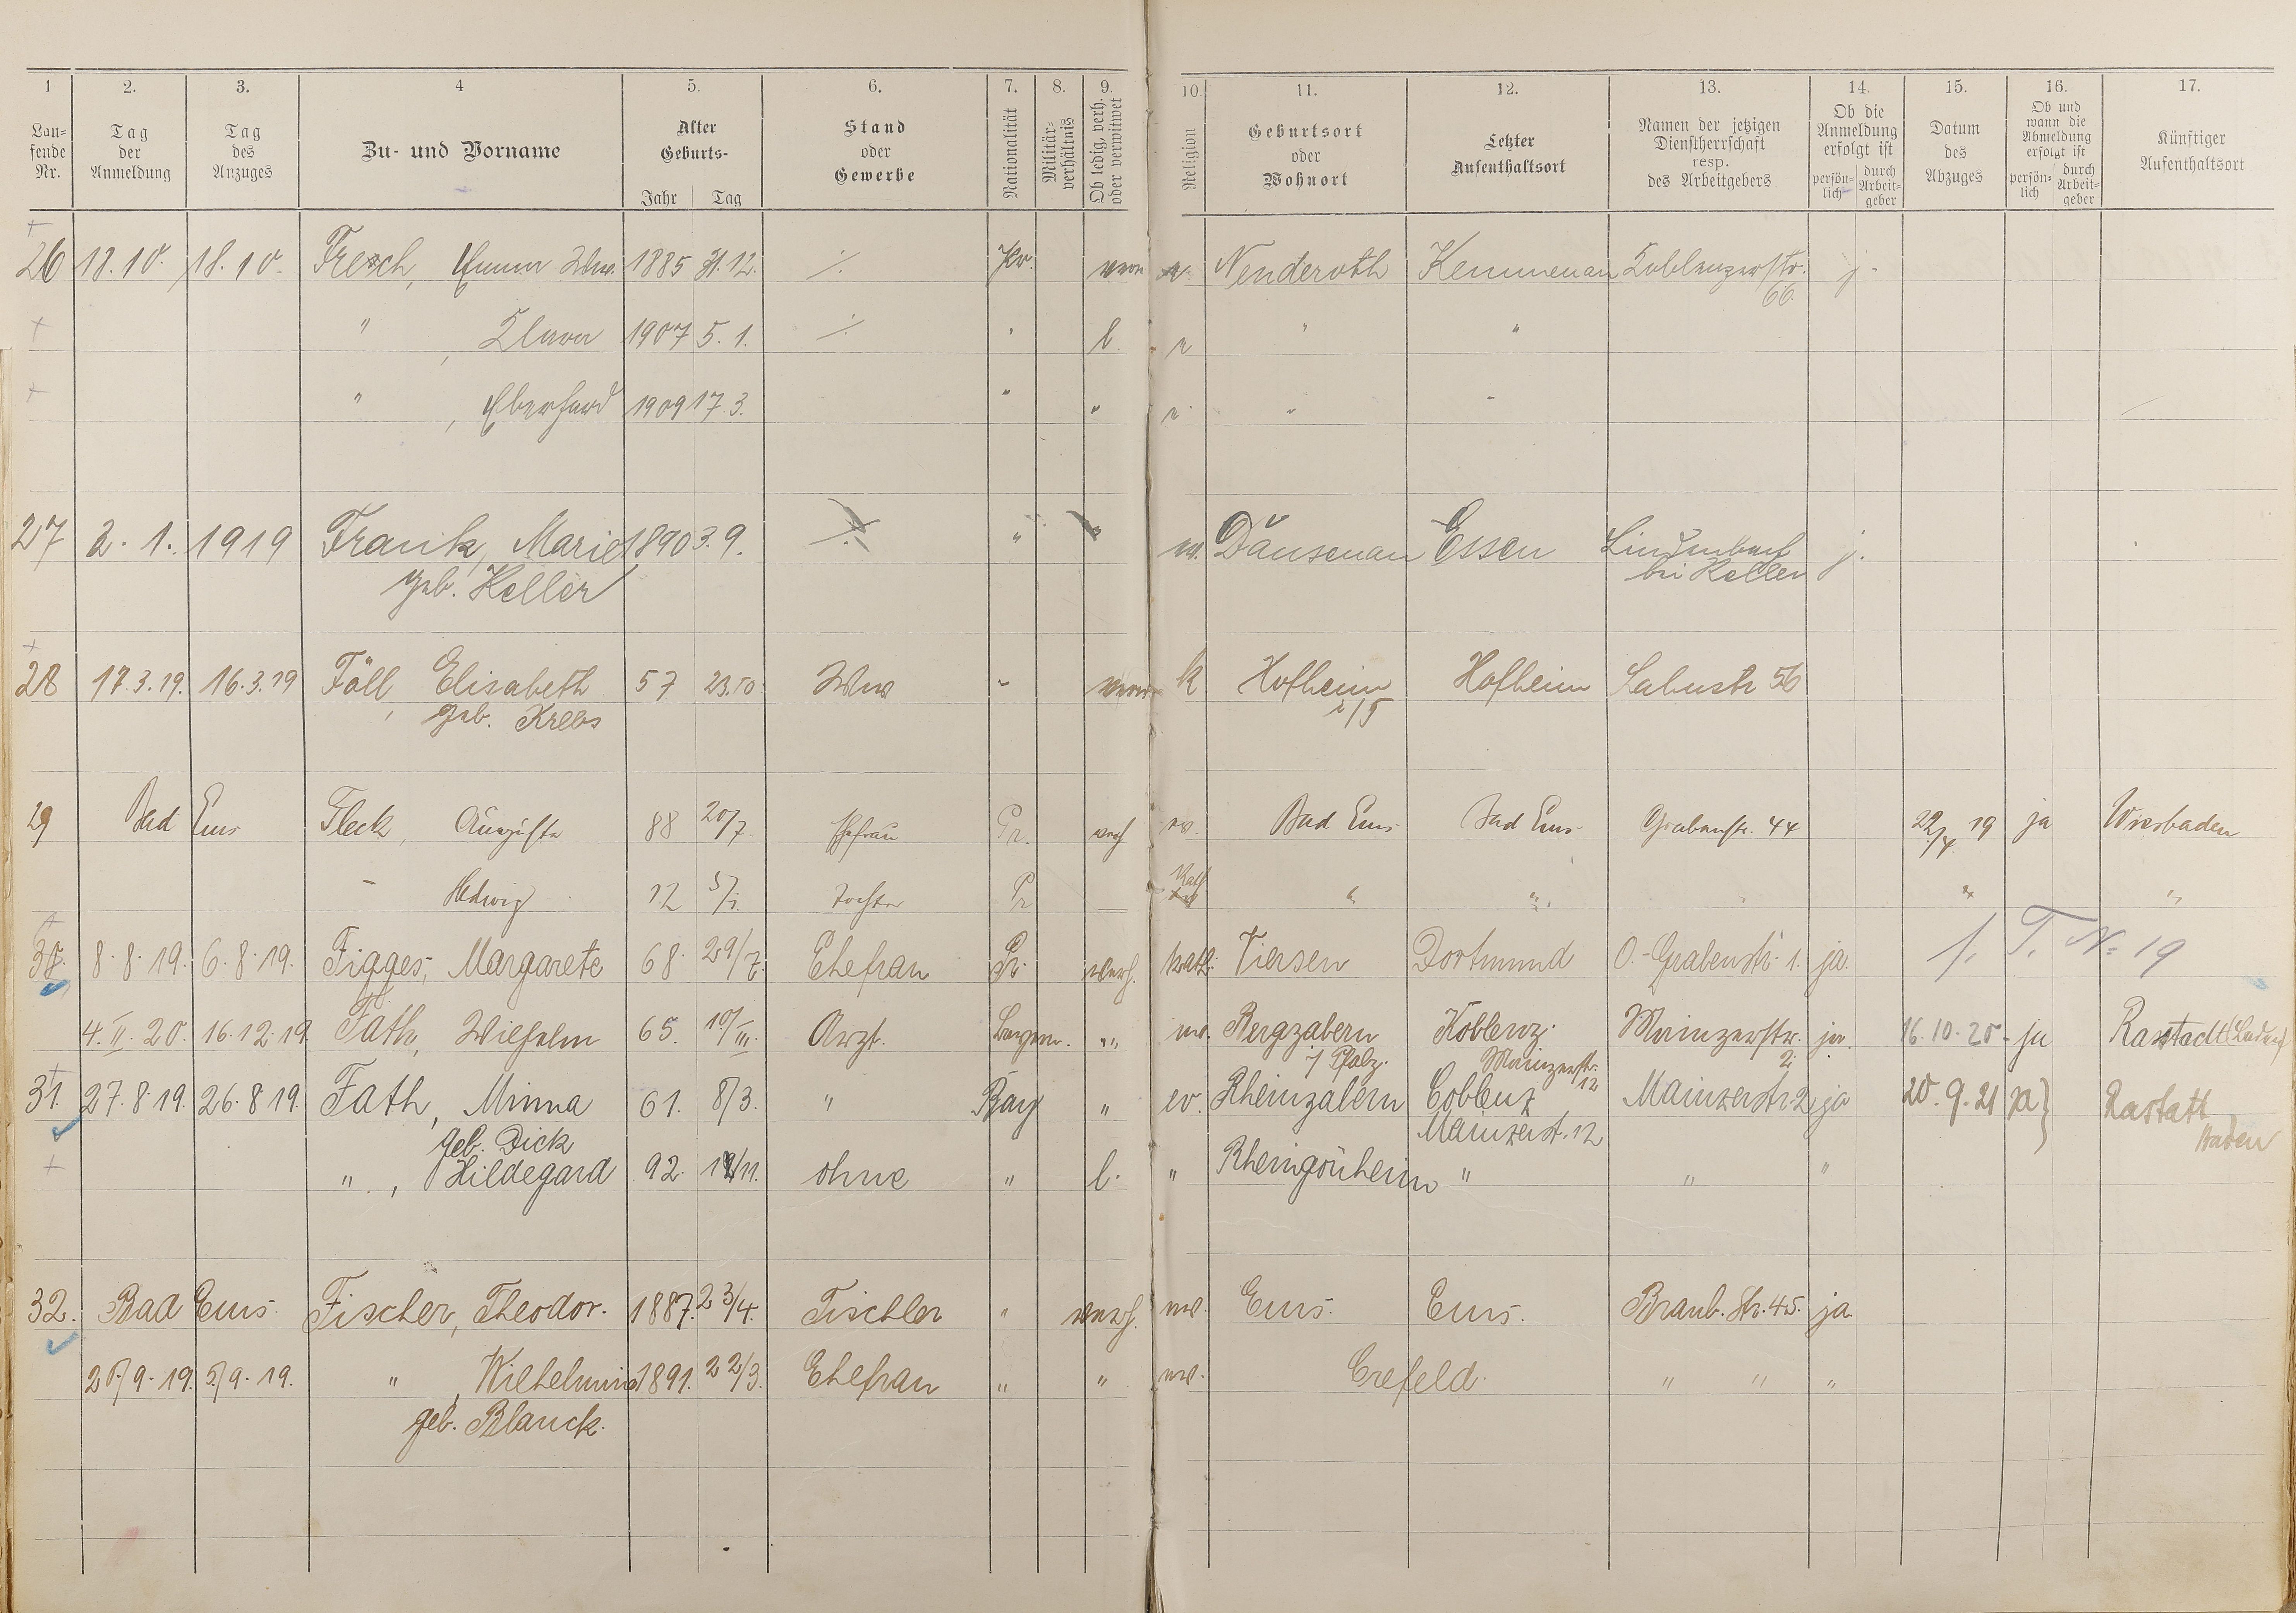 1 2. 3. 4 5. 6. 7. 8. 9. 10. 11. 12. 13. 14. 15. 16. 17.
Lau-
fende
Nr.
Tag
der
Anmeldung
Tag
des
Anzuges
Zu- und Vorname
Alter
Geburts-
Jahr Tag
Stand
oder
Gewerbe
Nationalität
Militär-
verhältnis
Ob ledig, verh.
oder verwitwet
Religion
Geburtsort
oder
Wohnort
Letzter
Aufenthaltsort
Namen der jetzigen
Dienstherrschaft
resp.
des Arbeitgebers
Ob die
Anmeldung
erfolgt ist
persön-
lich
durch
Arbeit-
geber
Datum
des
Abzuges
Ob und
wann die
Abmeldung
erfolgt ist
persön-
lich
durch
Arbeit-
geber
Künftiger
Aufenthaltsort
26 18.10. 18.10. Fresch, Emma Ww. 1885 31.12. ·/. Pr. Nenderoth Kemmenau Coblenzerstr. j.
66.
" , Clara 1907 5.1. ·/. " l. " "
" , Eberhard 1909 17.3. " " " "
27 2.1. 1919 Frank, Marie 1890 3.9. ·/. " " Dausenau Essen Lindenbach j.
geb. Keller bei Keller
28 17.3.19. 16.3.19 Föll, Elisabeth 57 23.10 Ww " k Hofheim Hofheim Lahnstr 56
geb. Krebs
29 Bad Ems Fleck, Auguste 88 20/7. Ehefrau Pr. verh ev. Bad Ems Bad Ems Grabenstr. 44 22/4. 19 ja Wiesbaden
" Hedwig 12 5/1. Tochter Pr Kath " " " "
30. 8.8.19. 6.8.19. Figges, Margarete 68. 29/7. Ehefrau Pr. verh. kath. Viersen Dortmund O.-Grabenstr. 1. ja. f. T. N= 19
4.II.20. 16.12.19. Fath, Wilhelm 65. 10/III. Arzt. Bayern. " ev. Bergzabern Koblenz. Mainzerstr. ja. 16.10.20. ja Rastadt (Baden)
/ Pfalz. Mainzerstr. 2
12
31. 27.8.19. 26.8.19. Fath, Minna 61. 8/3. " Bay " ev. Rheinzabern Coblenz Mainzerstr. 2 ja 20.9.21 ja } Rastatt
geb. Dick Mainzerst. 12 Baden
" , Hildegard 92. /11. ohne " l. " Rheingönheim " " "
32. Bad Ems Fischer, Theodor. 1887. 23/4. Tischler " verh. ev. Ems. Ems. Braub. Str. 45. ja.
/9.19. 5/9.19. " , Wilhelmine 1891. 22/3. Ehefrau " " ev. Crefeld. " " "
geb. Blanck.